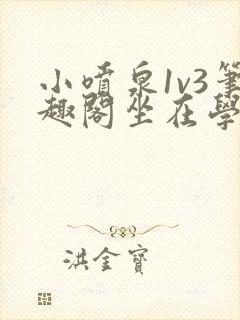 小噴泉1v3筆
趣閣坐在學
洪金寶